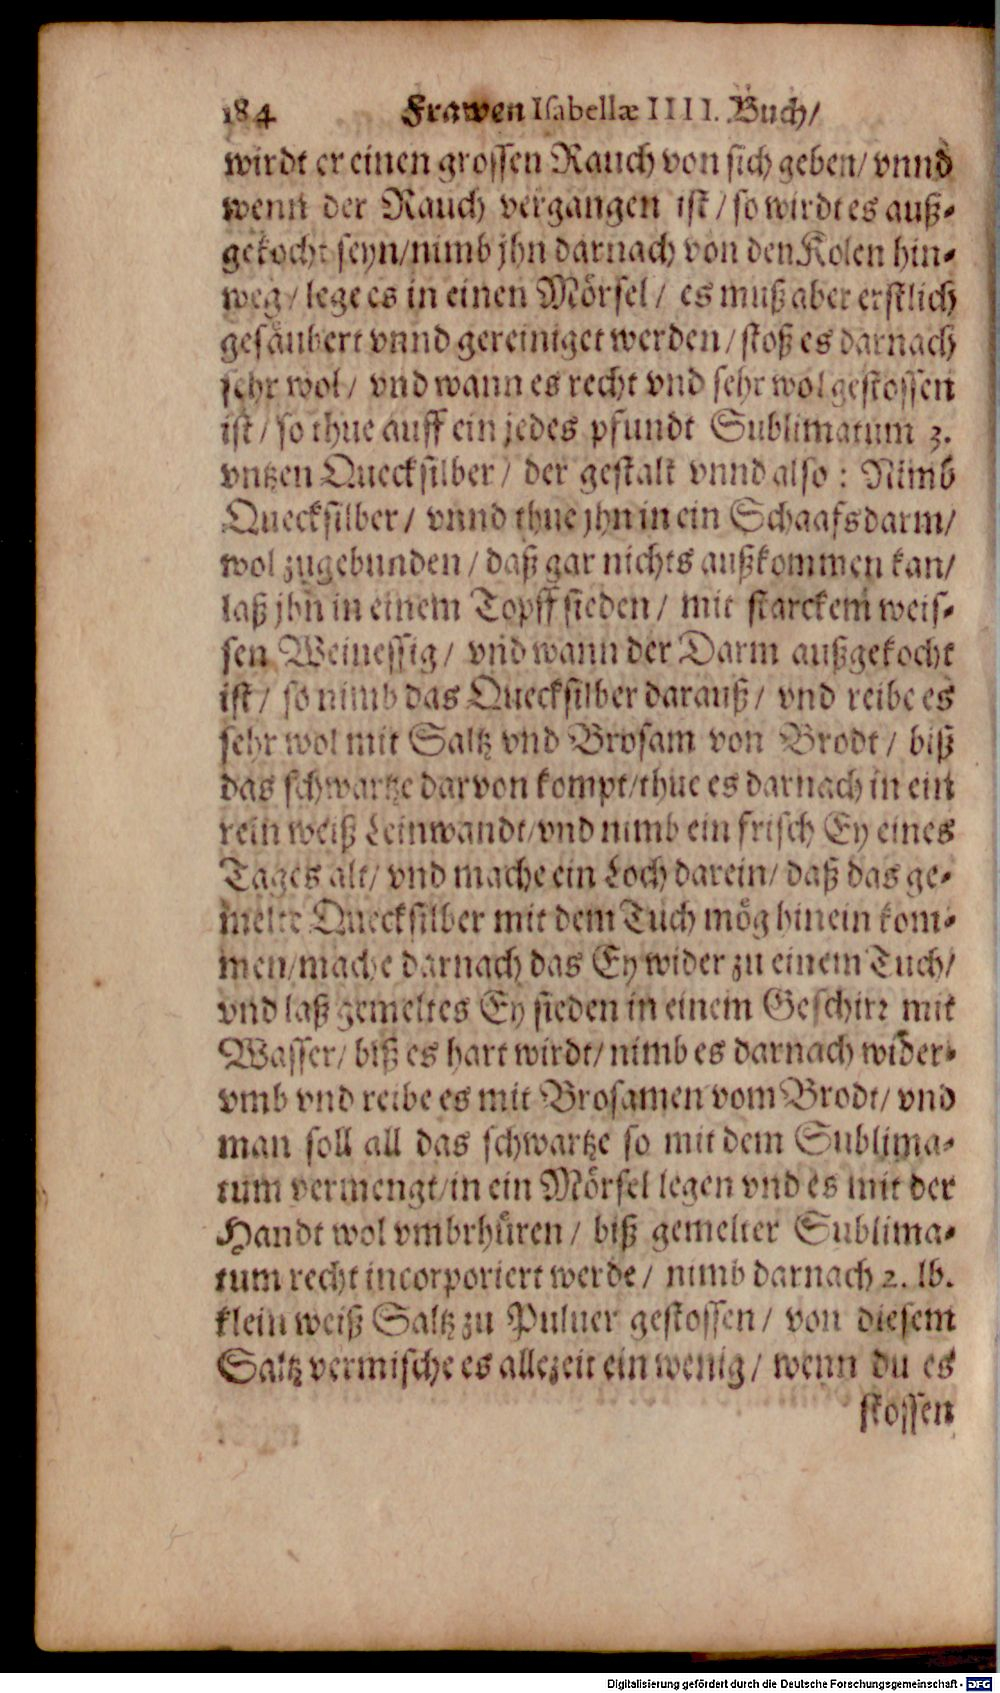 184 Frawen Isabellæ IIII. Buch/
wirdt er einen grossen Rauch von sich geben/ vnnd
wenn der Rauch vergangen ist/ so wirdt es auß-
gekocht seyn/nimb jhn darnach von den Kolen hin-
weg/ lege es in einen Mörsel/ es muß aber erstlich
gesäubert vnnd gereiniget werden/ stoß es darnach
sehr wol/ vnd wann es recht vnd sehr wol gestossen
ist/ so thue auff ein jedes pfundt Sublimatum 3.
vntzen Quecksilber/ der gestalt vnnd also: Nimb
Quecksilber/ vnnd thue jhn in ein Schaafsdarm/
wol zugebunden/ daß gar nichts außkommen kan/
laß jhn in einem Topff sieden/ mit starckem weis-
sen Weinessig/ vnd wann der Darm außgekocht
ist/ so nimb das Quecksilber darauß/ vnd reibe es
sehr wol mit Saltz vnd Brosam von Brodt/ biß
das schwartze darvon kompt/thue es darnach in ein
rein weiß Leinwandt/vnd nimb ein frisch Ey eines
Tages alt/ vnd mache ein Loch darein/ daß das ge-
melte Quecksilber mit dem Tuch mög hinein kom-
men/mache darnach das Ey wider zu einem Tuch/
vnd laß gemeltes Ey sieden in einem Geschirr mit
Wasser/ biß es hart wirdt/ nimb es darnach wider-
vmb vnd reibe es mit Brosamen vom Brodt/ vnd
man soll all das schwartze so mit dem Sublima-
tum vermengt/in ein Mörsel legen vnd es mit der
Handt wol vmbrhüren/ biß gemelter Sublima-
tum recht incorporiert werde/ nimb darnach 2. lb.
klein weiß Saltz zu Puluer gestossen/ von diesem
Saltz vermische es allezeit ein wenig/ wenn du es
stossen
Digitalisierung gefördert durch die Deutsche Forschungsgemeinschaft - DFG